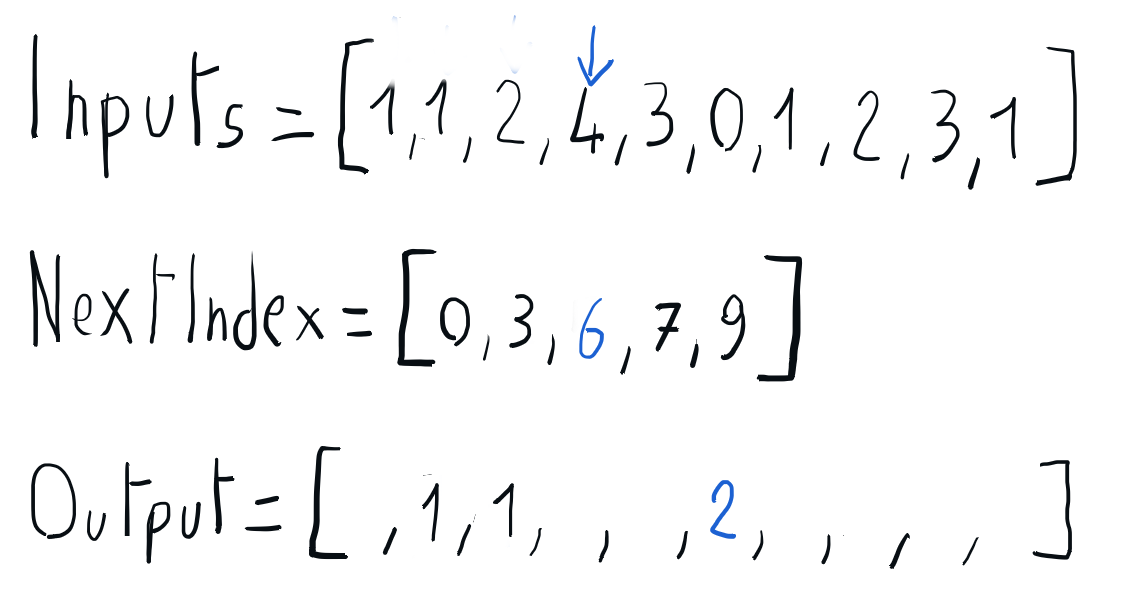 Inputs = [1,1,2,4,3,0,1,2,3,1]
NextIndex = [0,3,6,7,9]
Output = [ ,1,1, , ,2, , , , ]